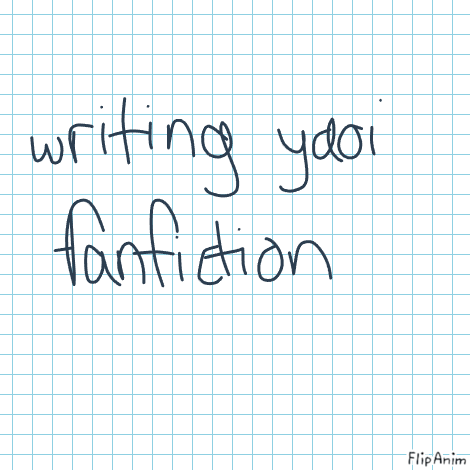 writing yaoi
fanfiction
FlipAnim